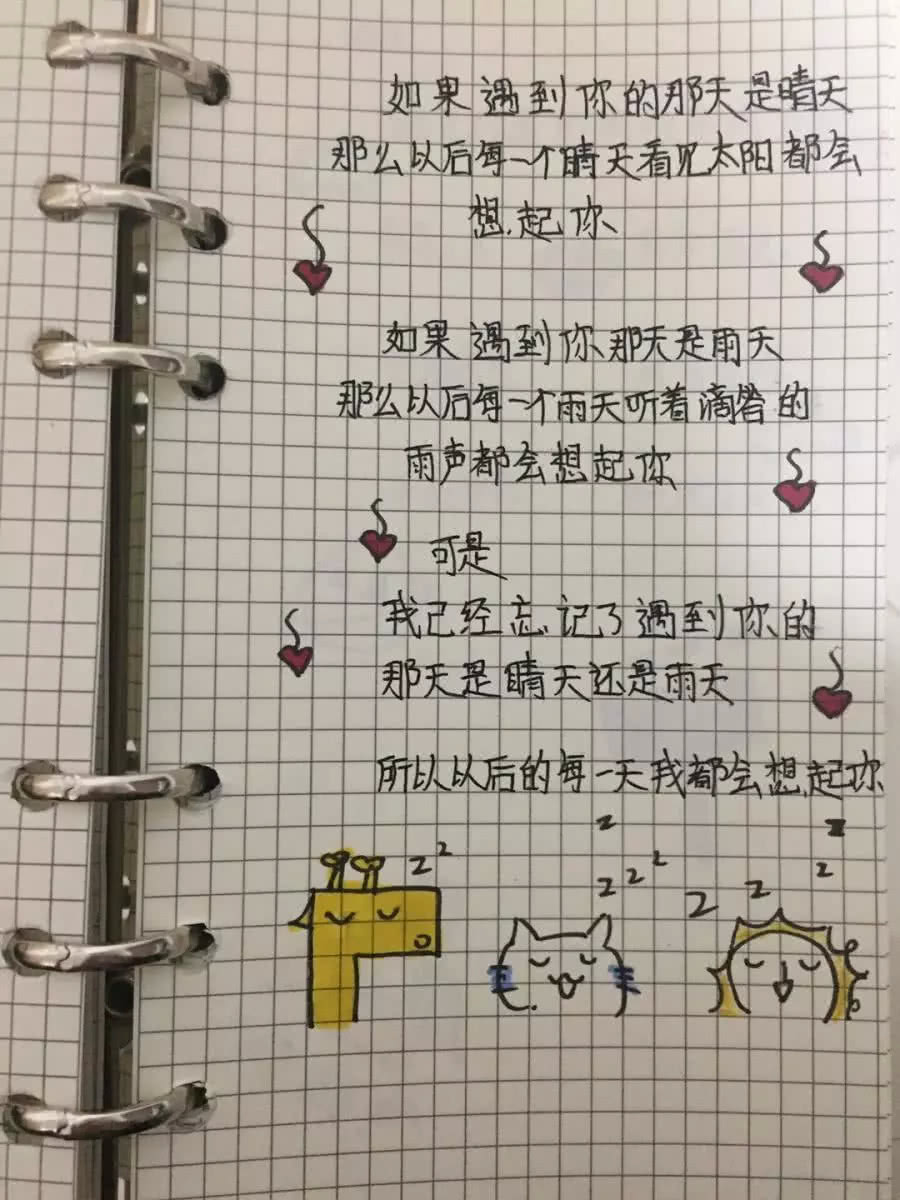 如果遇到你的那天是晴天
那么以后每一个晴天看见太阳都会
想起你
如果遇到你那天是雨天
那么以后每一个雨天听着滴答的
雨声都会想起你
可是
我已经忘记了遇到你的
那天是晴天还是雨天
所以以后的每一天我都会想起你
z z
z z
z z z z z z